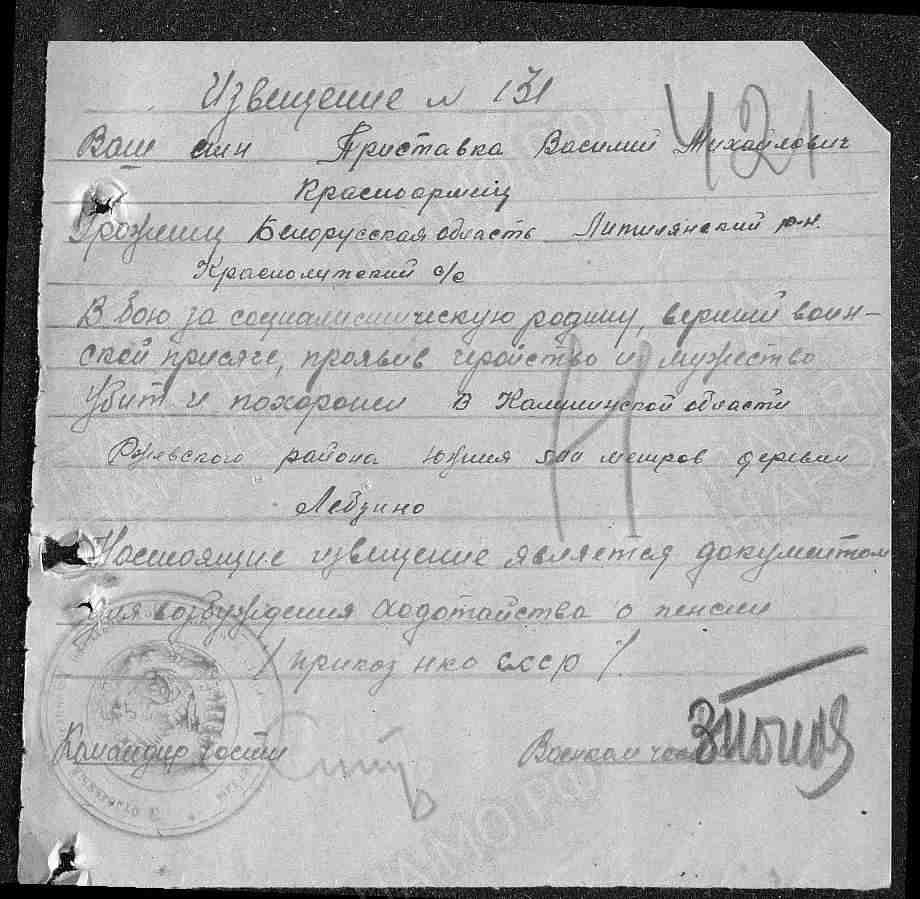 Извещение № 131
421
Ваш сын Приставка Василий Михайлович
Красноармеец
Уроженец Белорусская область
Краснолутский с/с
В бою за социалистическую родину, верный воин-
ской присяге, проявив геройство и мужество
Убит и похоронен в Калининской области
Ржевского района южнее 500 метров деревни
Лебзино
Н
Настоящие извещение является документом
для возбуждения ходотайства о пенсии
/ приказ нко ссср /
Командир части
Военком